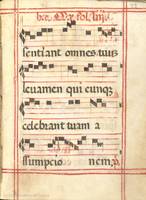 sentiant omnes tuum
leuamen qui cunqꝫ
celebrant tuam a
ssumpcio nem